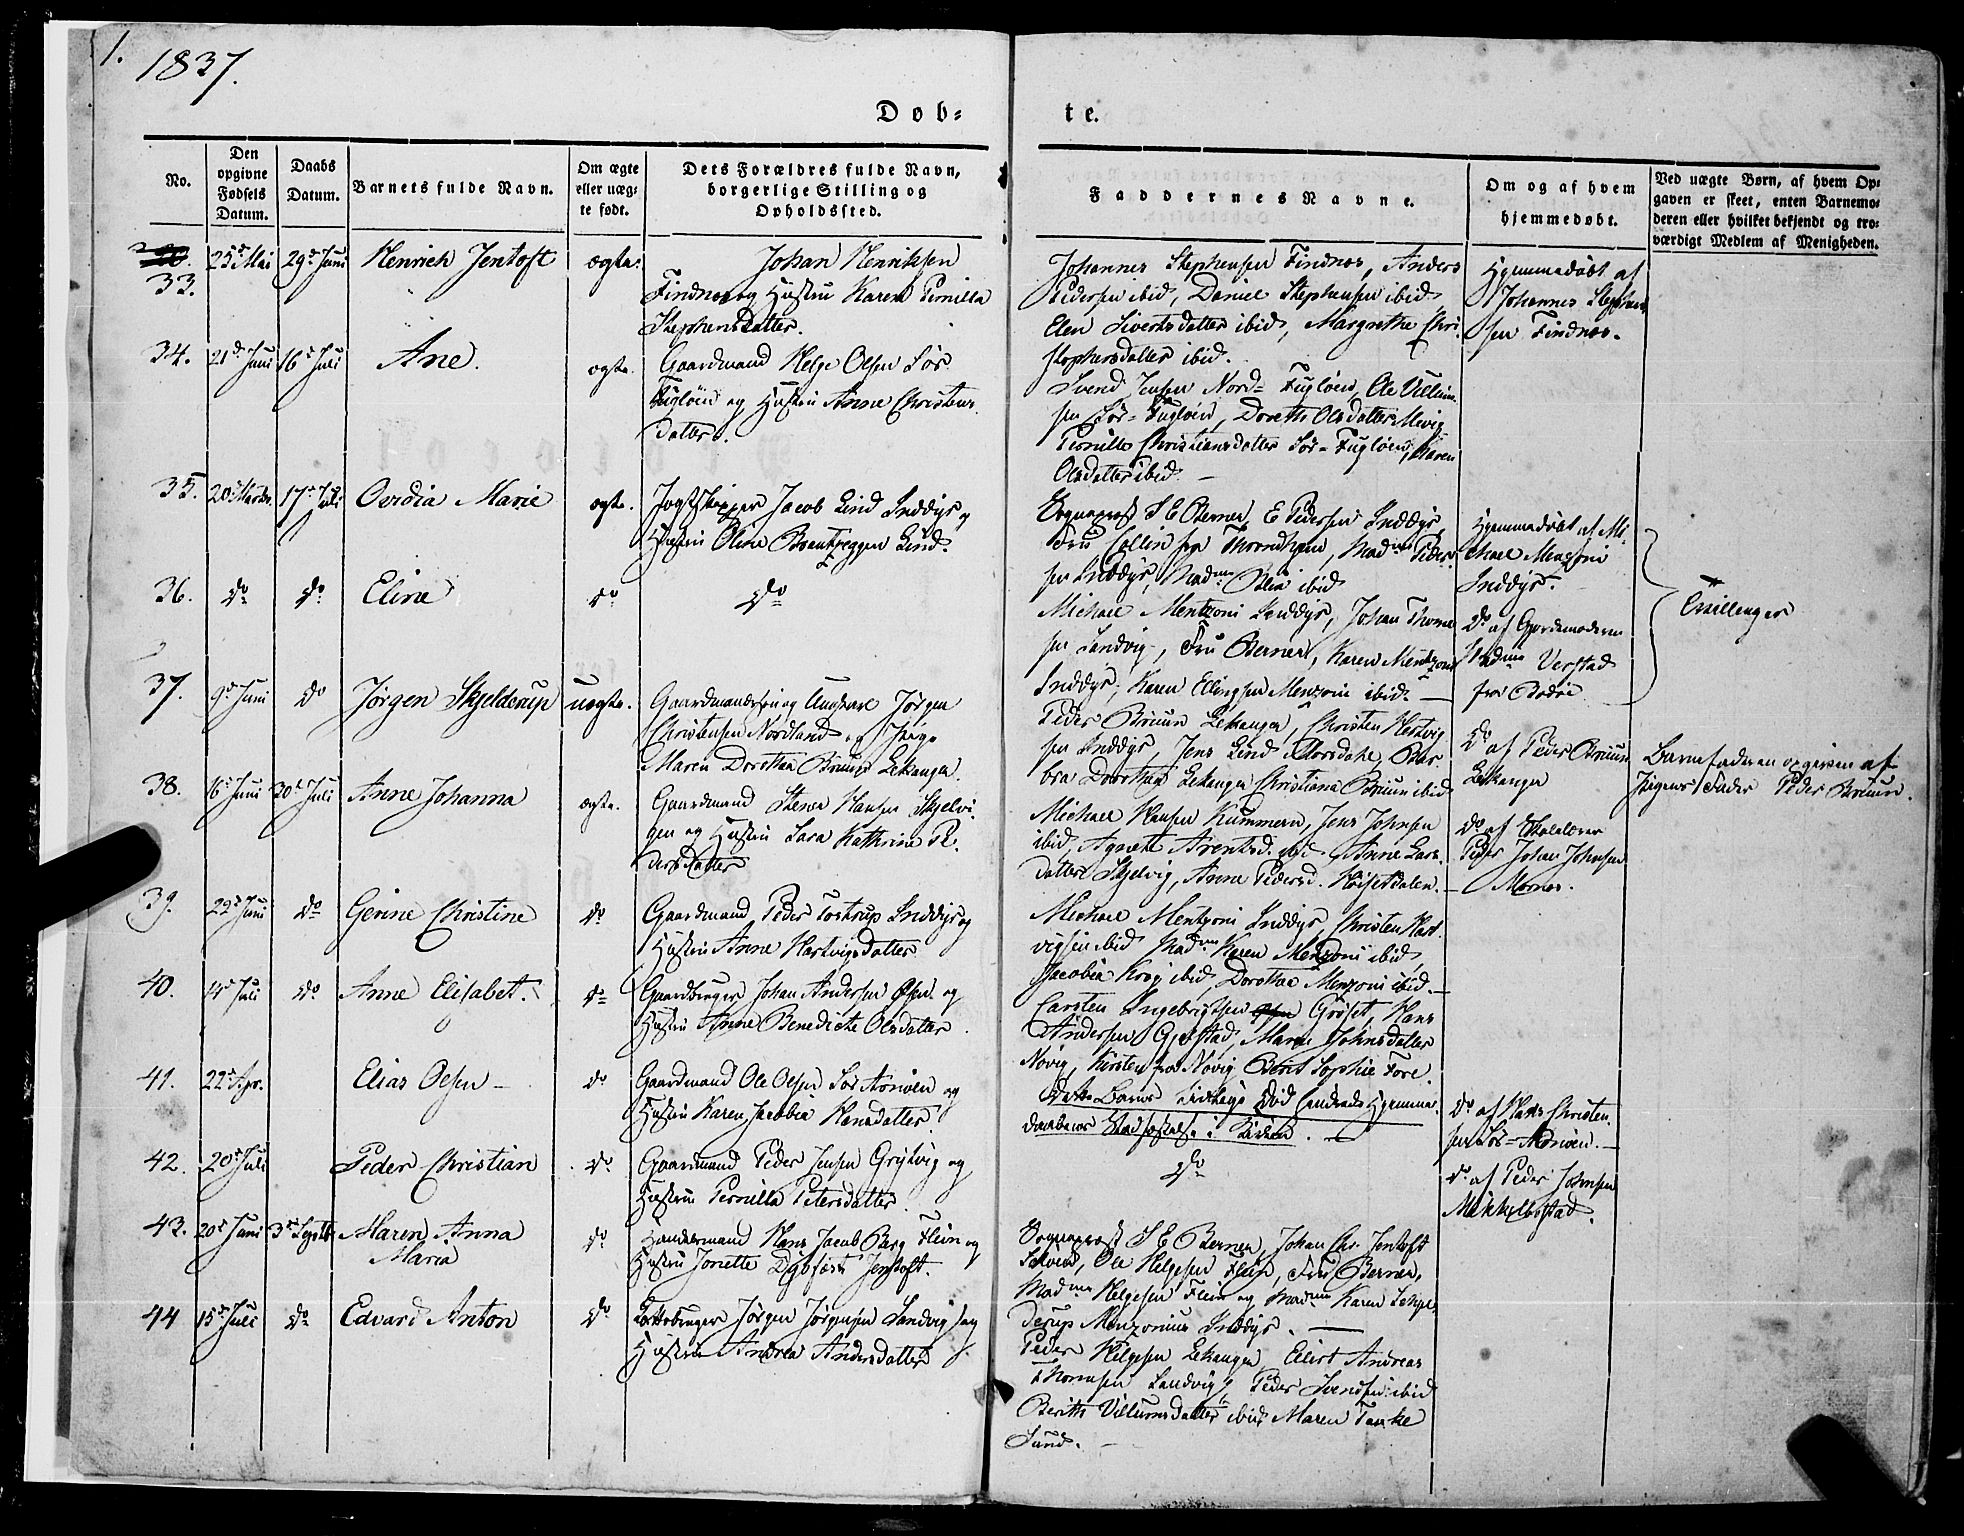 1.
1837.
Døb-
te.
No.
Den opgivne Fødsels Datum.
Daabs Datum.
Barnets fulde Navn.
Om ægte eller uægte født.
Dets Forældres fulde Navn, borgerlige Stilling og Opholdssted.
Faddernes Navne.
Om og af hvem hjemmedøbt.
Ved uægte Børn, af hvem Opgaven er skeet, enten Barnemoderen eller hvilket bekjendt og troværdigt Medlem af Menigheden.
33.
25de Mai
29de Juni
Henrich Jentoft
ægte.
Johan Henriksen
Findnes og Hustru Karen Pernilla
Stephensdatter.
Johannes Stephensen Findnes, Anders
Pedersen ibid, Daniel Stephensen ibid
Elen Sivertsdatter ibid, Margrethe Chri-
stophersdatter ibid.
Hjemmedøbt af
Johannes Stephen-
sen Findnes.
34.
21de Juni
16de Juli
Ane.
ægte.
Gaardmand Helge Olsen Sør
Fugløen og Hustru Anne Christens
datter.
Svend Jensen Nord-Fugløen, Ole Villum-
sen Sør-Fugløen, Doreth Olsdatter Mevig
Pernille Christiansdatter Sør-Fugløen, Maren
Olsdatter ibid. —
35.
20 Martz.
17de Juli
Ovidia Marie
ægte.
Jagtskipper Jacob Lind Inddyr og
Hustru Oline Brantzeggen Lind.
Sogneprest S E Berner, E Pedersen Inddyr,
Fru Collin fra Throndhjem, Madme Peder-
sen Inddyr, Madme ibid
Hjemmedøbt af Mi-
chael Menzoni
Inddyr.
36.
do
do
Eline
do
do
Michael Mentzoni Inddyr, Johan Thome
sen Sandvig, Fru Berner, Karen Mentzoni
Inddyr, Karen Ellingsen Menzoni ibid. —
do af Gjordemoderen
Madme Verstad
fra Bodøe.
Tvillinger
37.
9de Juni
do
Jørgen Skjelderup
uægte.
Gaardmandssøn og Ungkarl Jørgen
Christensen Nordland og Pige
Maren Dorethea Bruun Lekanger.
Peder Bruun Lekanger, Christen Hertvig
sen Inddyr, Jens Lind Morsdahl, Bar-
bra Dorethea Lekanger Christiana Bruun ibid
do af Peder Bruun
Lekanger
Barnefaderen opgiven af
Pigens Fader Peder Bruun.
38.
16de Juni
30de Juli
Anne Johanna
ægte.
Gaardmand Stener Hansen Skjelvi-
gen og Hustru Sara Kathrine Pe-
dersdatter
Michael Hansen Kummern, Jens Johnsen
ibid, Agnete Arentsd. ibid Anne Lars-
datter Skjelvig, Anne Pedersd. Høisetdalen. —
do af Skolelærer
Peder Johan Johnsen
— Mornes.
39.
29de Juni
do
Gerine Christine
do
Gaardmand Peder Tostrup Inddyr og
Hustru Anne Hartvigsdatter
Michael Mentzoni Inddyr, Christen Hart-
vigsen ibid Madme Karen Menzoni ibid,
Jacobia Krog ibid, Dorothea Menzoni ibid. —
40.
14de Juli
do
Anne Elisabet.
do
Gaardbruger Johan Andersen Øsen og
Hustru Anne Benedicte Olsdatter.
Carsten Ingebrigtsen Grøset, Hans
Andersen Gjelstad, Maren Johnsdatter
Novig, Kirsten fra Novig Berit Sophie Fore.
41.
22de Apr.
Elias Olsen —
do
Gaardmand Ole Olsen Sør Arnøen og
Hustru Karen Jacobia Hansdatter.
Dette Barns tidlige Død hindrede Hjemme-
daabens Stadfæstelse i Kirken. —
do af Hans Christen-
sen Sør-Arnøen. —
42.
20de Juli
Peder Christian
do
Gaardmand Peder Jensen Grytvig og
Hustru Pernilla Petersdatter.
do
do af Peder Johnsen
Mikkelbostad.
43.
20de Juni
3de Septb.
Maren Anna
Maria
do
Handelsmand Hans Jacob Berg Flein og
Hustru Jonette Dybfæst Jentoft.
Sogneprest S E Berner, Johan Chr. Jentoft
Selvind, Ole Helgesen Flein, Fru Berner,
Madme Helgesen Flein og Madme Karen Schjel-
derup Menzonius Inddyr. —
44
15de Juli
do
Edvard Anton
do
Jørgen Jørgensen Sandvig og
Hustru Andrea Andersdatter
Peder Helgesen Lekanger, Eilert Andreas
Thomsen Sandvig, Peder Svendsen ibid
Berith Villumsdatter ibid Maren Tanke
Sund. —